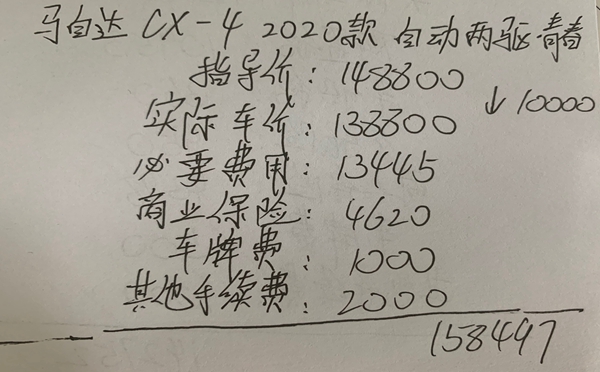 马自达 CX-4 2020款 自动两驱青春
指导价: 148800
↓10000
实际车价: 138800
必要费用: 13445
商业保险: 4620
车牌费: 1000
其他手续费: 2000
158497